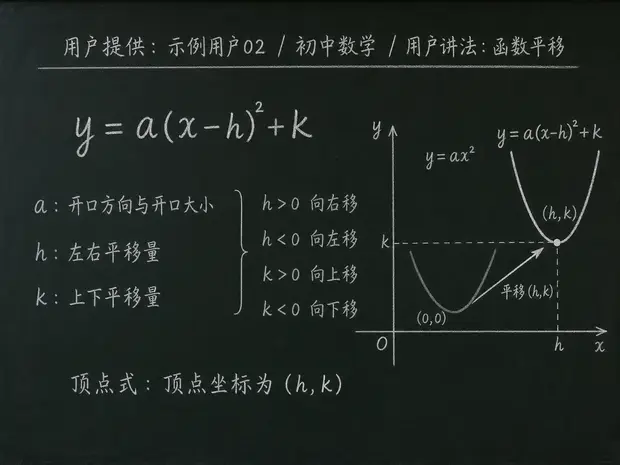 用户提供: 示例用户02 / 初中数学 / 用户讲法: 函数平移
y = a(x-h)²+k
a: 开口方向与开口大小
h: 左右平移量
k: 上下平移量
h>0 向右移
h<0 向左移
k>0 向上移
k<0 向下移
y
y=ax²
y=a(x-h)²+k
(h,k)
k
平移(h,k)
(0,0)
O
h
x
顶点式: 顶点坐标为 (h,k)